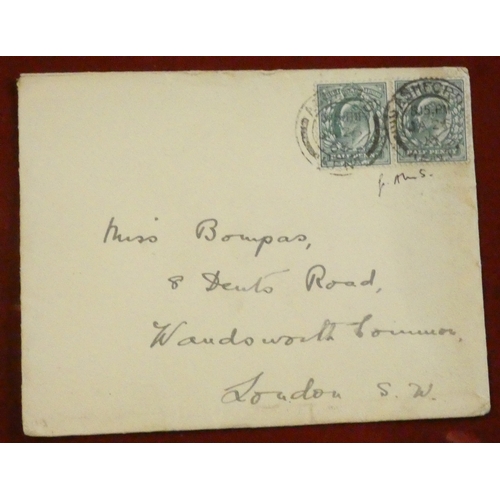 ASHFORD
HALF PENNY
HALF PENNY
Miss Bompas,
8 Dents Road,
Wandsworth Common,
London S. W.